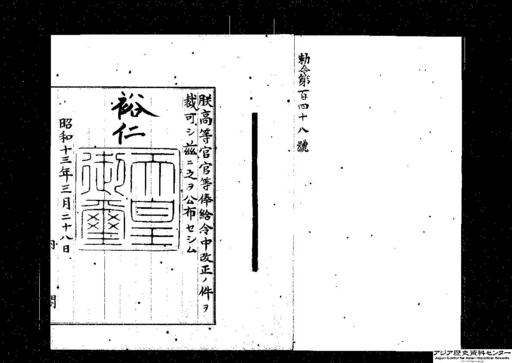 勅令第百四十八號
朕高等官官等俸給令中改正ノ件ヲ
裁可シ茲ニ之ヲ公布セシム
裕仁
天皇
御璽
昭和十三年三月二十八日
内 閣
アジア歴史資料センター
Japan Center for Asian Historical Records